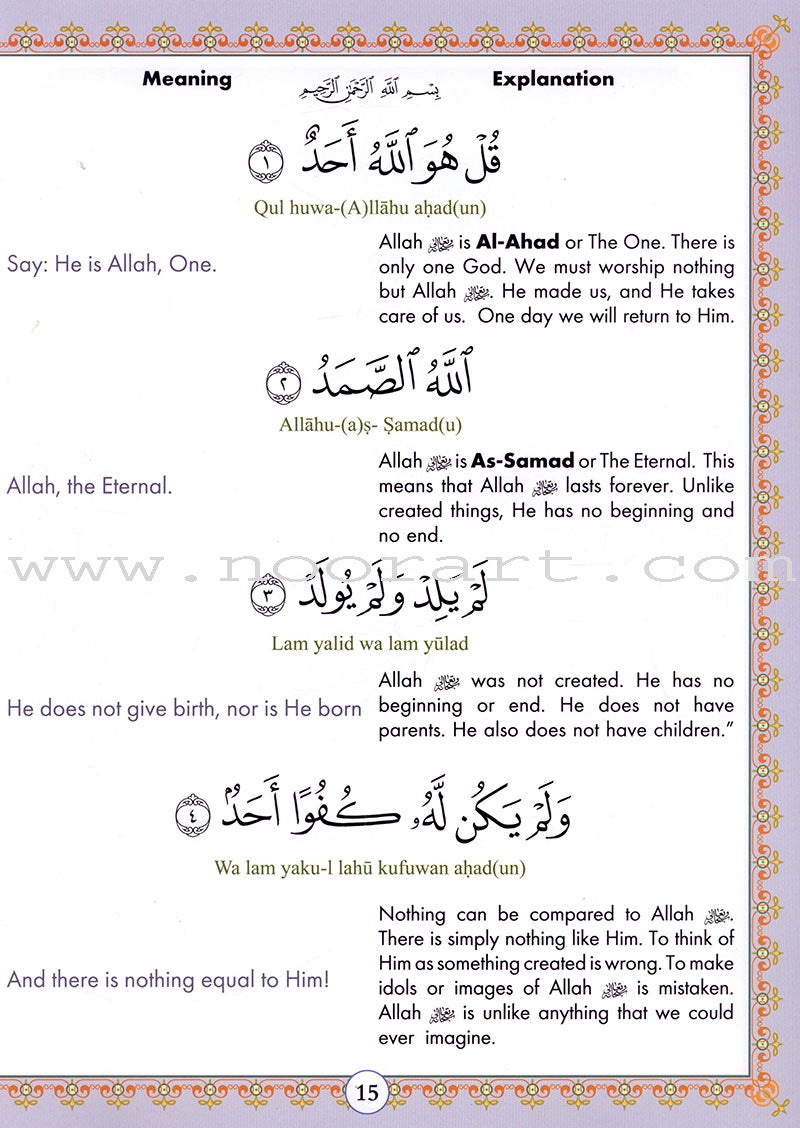 Meaning
بِسْمِ اللَّهِ الرَّحْمَٰنِ الرَّحِيمِ
Explanation
قُلْ هُوَ ٱللَّهُ أَحَدٌ ١
Qul huwa-(A)llāhu aḥad(un)
Say: He is Allah, One.
Allah is Al-Ahad or The One. There is
only one God. We must worship nothing
but Allah . He made us, and He takes
care of us. One day we will return to Him.
ٱللَّهُ ٱلصَّمَدُ ٢
Allāhu-(a)ṣ- Ṣamad(u)
Allah, the Eternal.
Allah is As-Samad or The Eternal. This
means that Allah lasts forever. Unlike
created things, He has no beginning and
no end.
www.noorart.com
لَمْ يَلِدْ وَلَمْ يُولَدْ ٣
Lam yalid wa lam yūlad
He does not give birth, nor is He born
Allah was not created. He has no
beginning or end. He does not have
parents. He also does not have children.”
وَلَمْ يَكُن لَّهُۥ كُفُوًا أَحَدٌۢ ٤
Wa lam yaku-l lahū kufuwan aḥad(un)
And there is nothing equal to Him!
Nothing can be compared to Allah .
There is simply nothing like Him. To think of
Him as something created is wrong. To make
idols or images of Allah is mistaken.
Allah is unlike anything that we could
ever imagine.
15